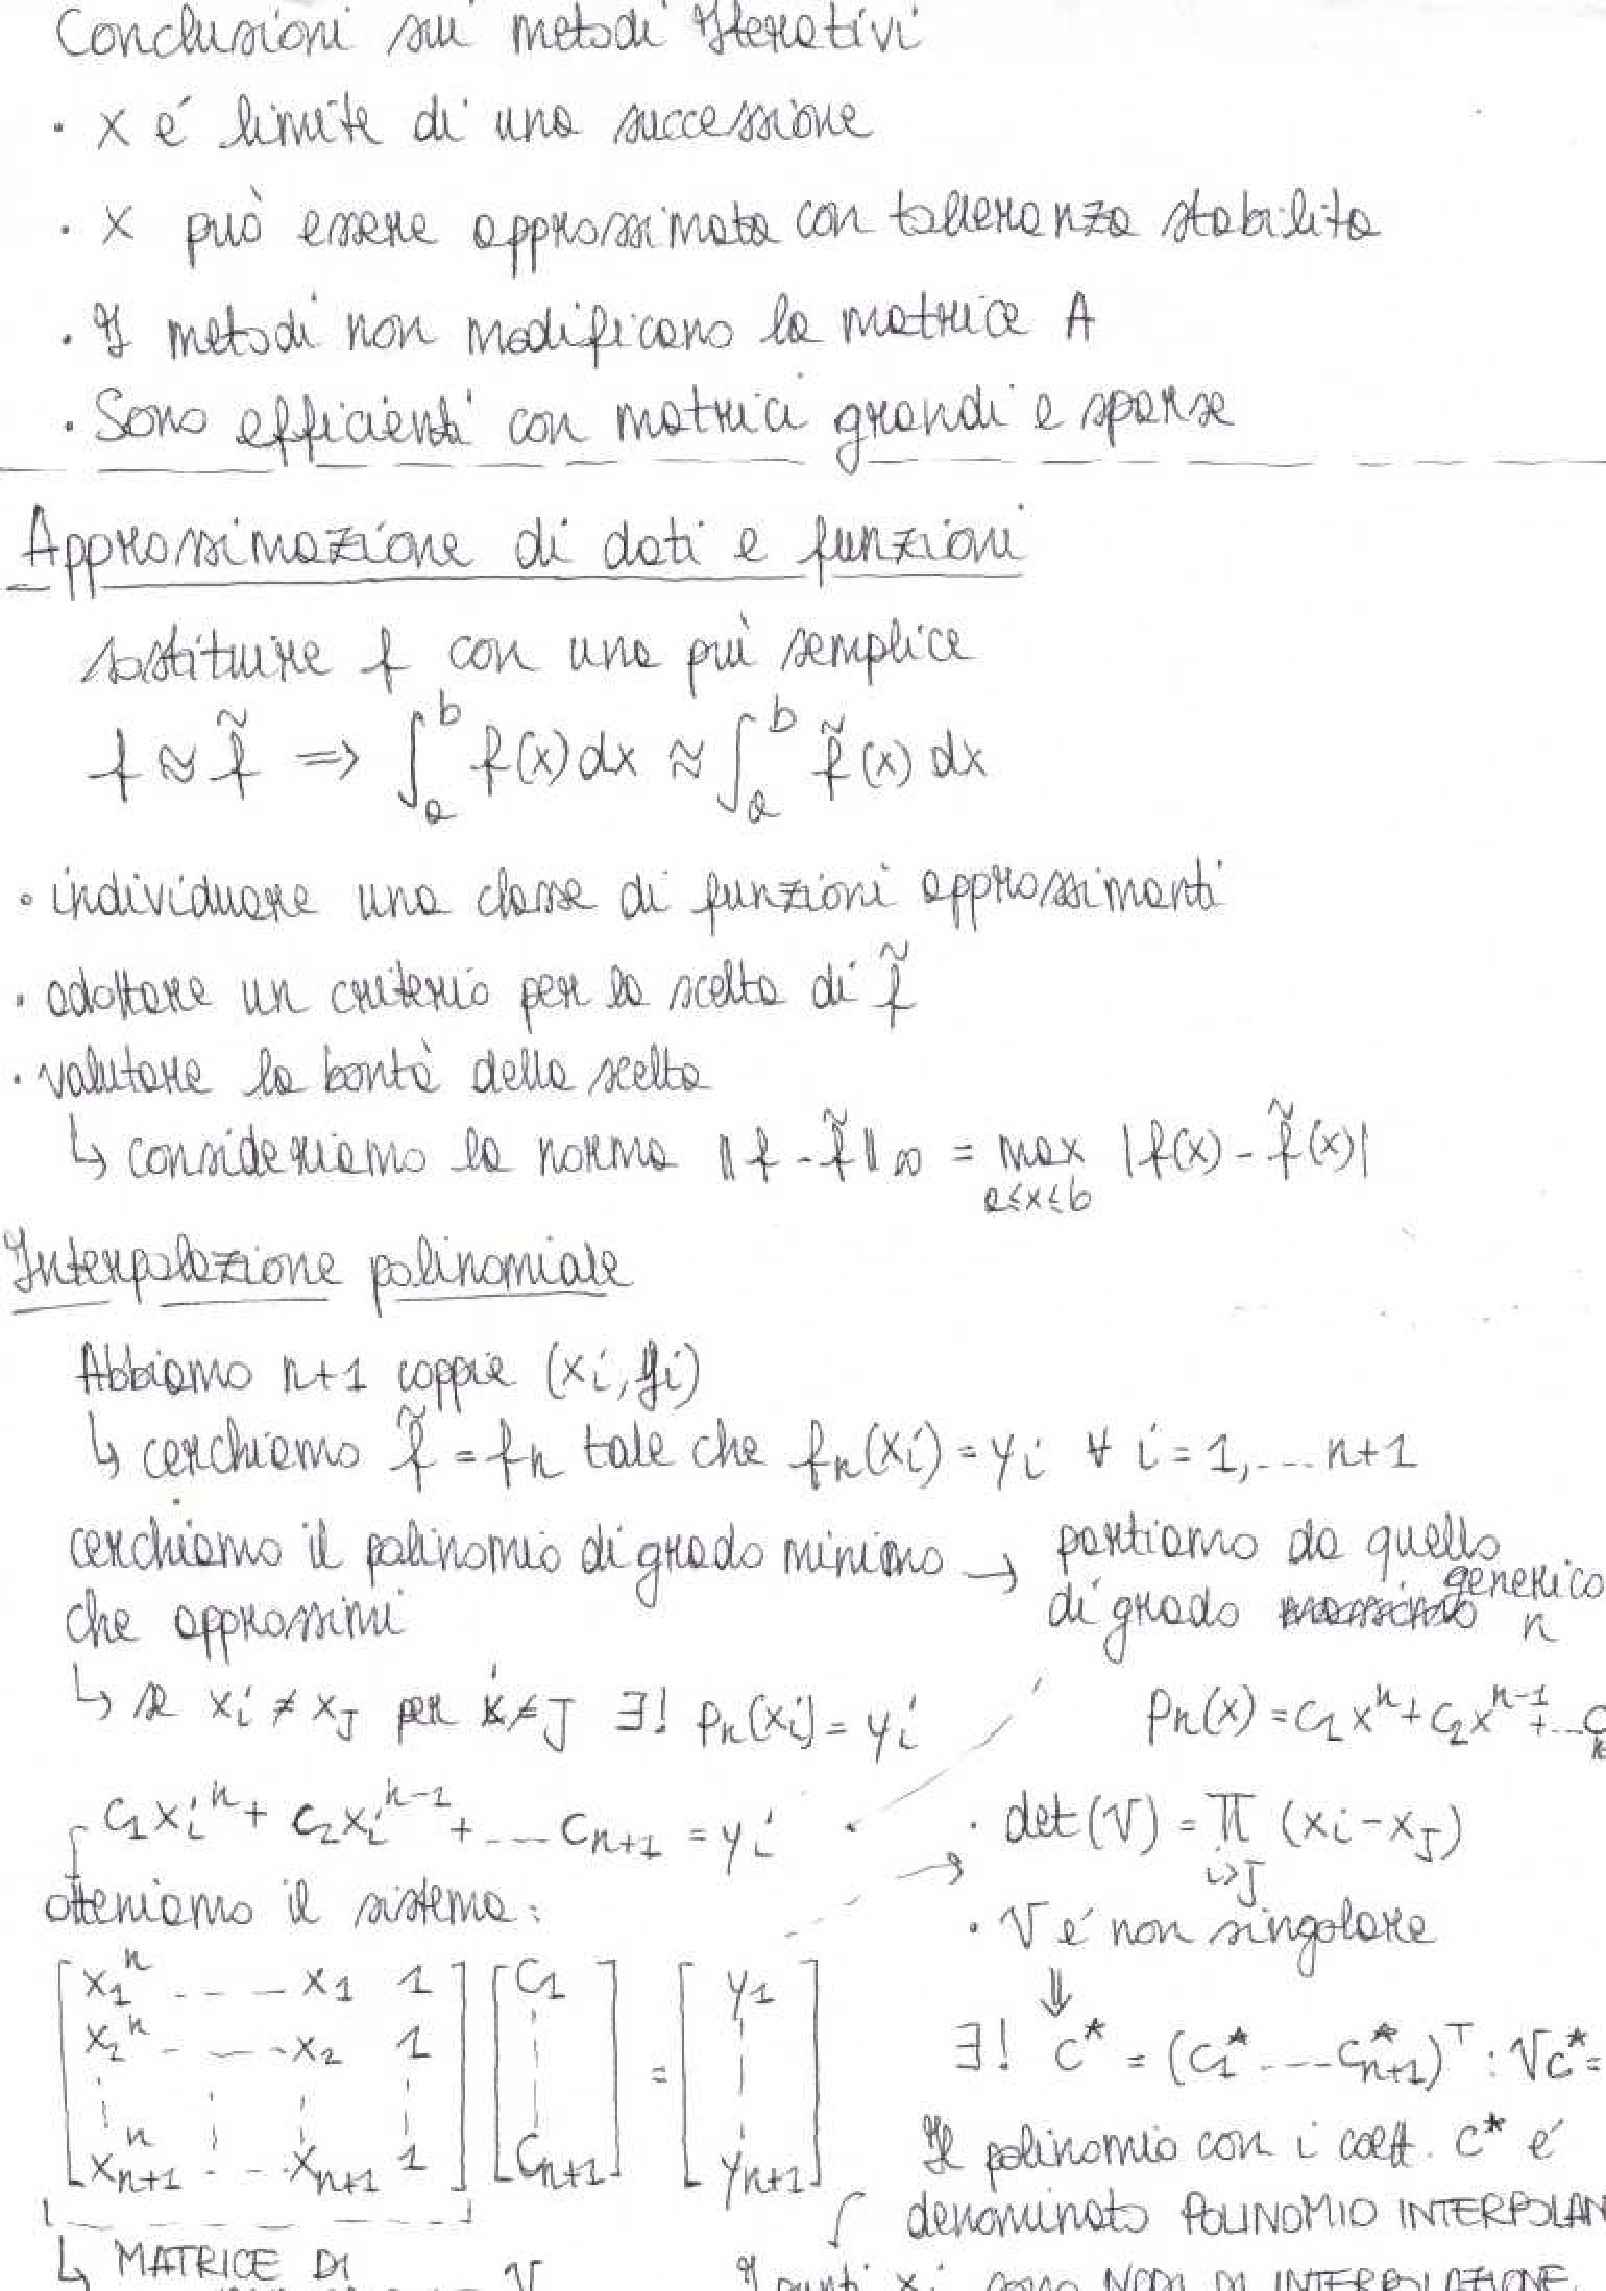 Conclusioni sui metodi Iterativi
· x é limite di una successione
· x può essere approssimata con tolleranza stabilita
· I metodi non modificano la matrice A
· Sono efficienti con matrici grandi e sparse
Approssimazione di dati e funzioni
sostituire f con una più semplice
f ≈ f̃ ⇒ ∫_a^b f(x) dx ≈ ∫_a^b f̃(x) dx
· individuare una classe di funzioni approssimanti
· adottare un criterio per la scelta di f̃
· valutare la bontà della scelta
↳ consideriamo la norma ‖f - f̃‖∞ = max |f(x) - f̃(x)|
a≤x≤b
Interpolazione polinomiale
Abbiamo n+1 coppie (xi, yi)
↳ cerchiamo f̃ = fn tale che fn(xi) = yi ∀ i = 1, ... n+1
cerchiamo il polinomio di grado minimo → partiamo da quello
che approssimi di grado generico n
↳ se xi ≠ xJ per i ≠ J ∃! Pn(xi) = yi
Pn(x) = c1 x^n + c2 x^n-1 + ... c
c1 xi^n + c2 xi^n-1 + ... cn+1 = yi
· det(V) = ∏ (xi - xJ)
i>J
otteniamo il sistema:
· V é non singolare
⇓
[x1^n ... x1 1] [c1] = [y1]
x2^n ... x2 1
xn+1^n ... xn+1 1 cn+1 yn+1
∃! c* = (c1* ... cn+1*)^T : Vc* =
Il polinomio con i coeff. c* é
denominato POLINOMIO INTERPOLAN
↳ MATRICE DI
V
I punti xi sono NODI DI INTERPOLAZIONE